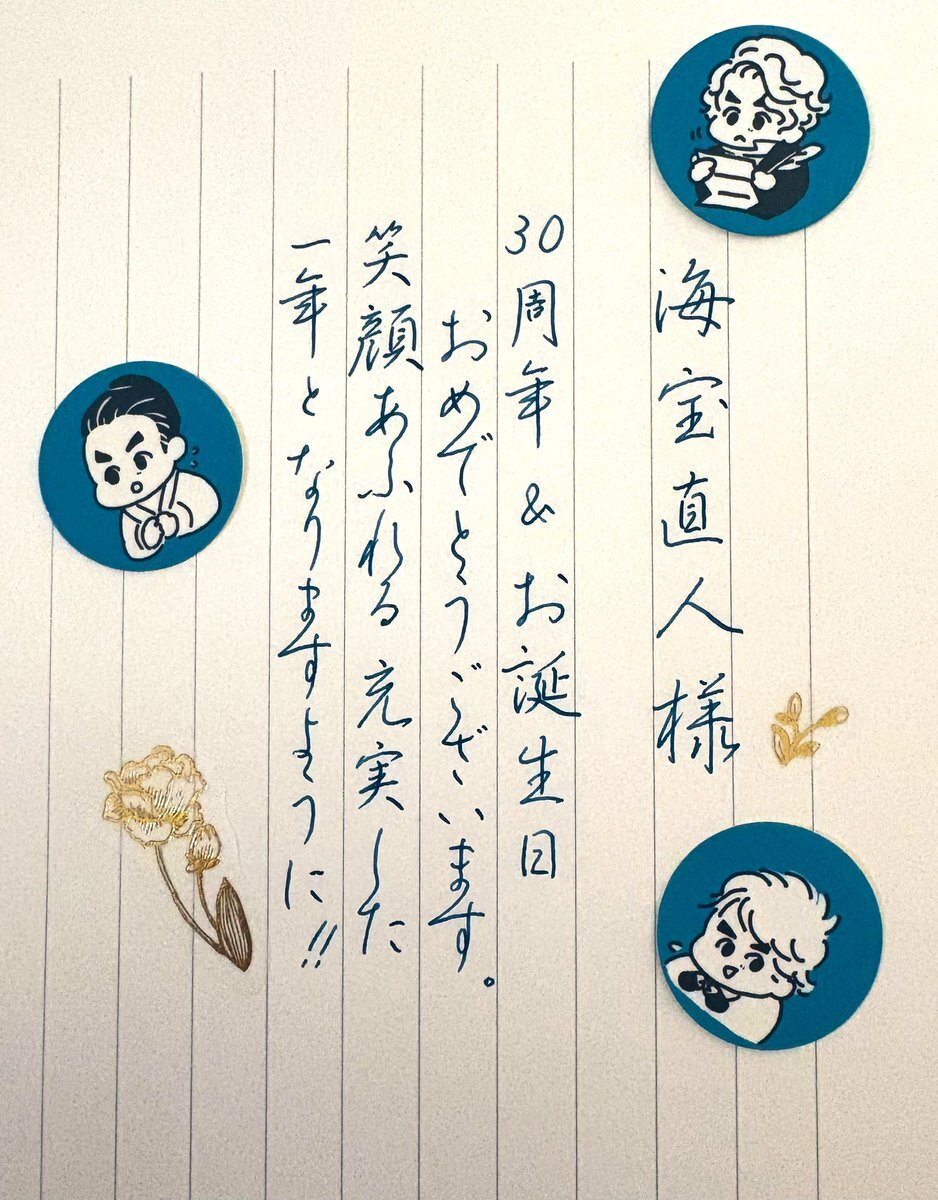 海宝直人様
30周年&お誕生日
おめでとうございます。
笑顔あふれる充実した
一年となりますように!!